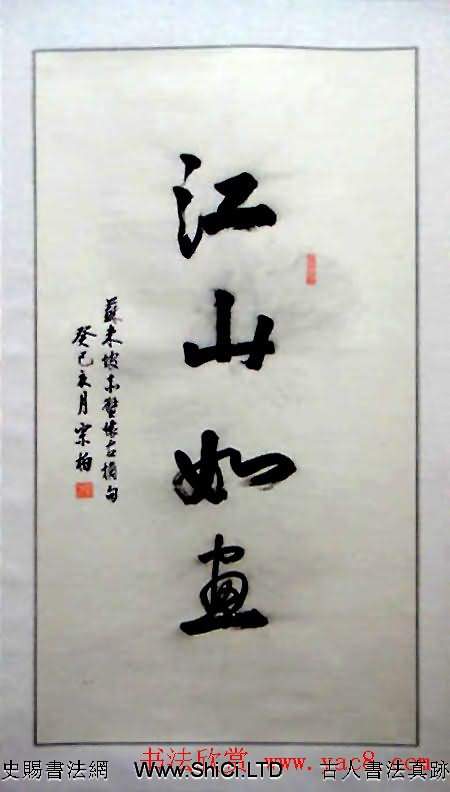 江山如畫
蘇東坡赤壁懷古摘句
癸巳亥月宗柏
书法欣赏 www.yac8.com
史賜書法網 Www.ShiCi.LTD 古人書法真跡